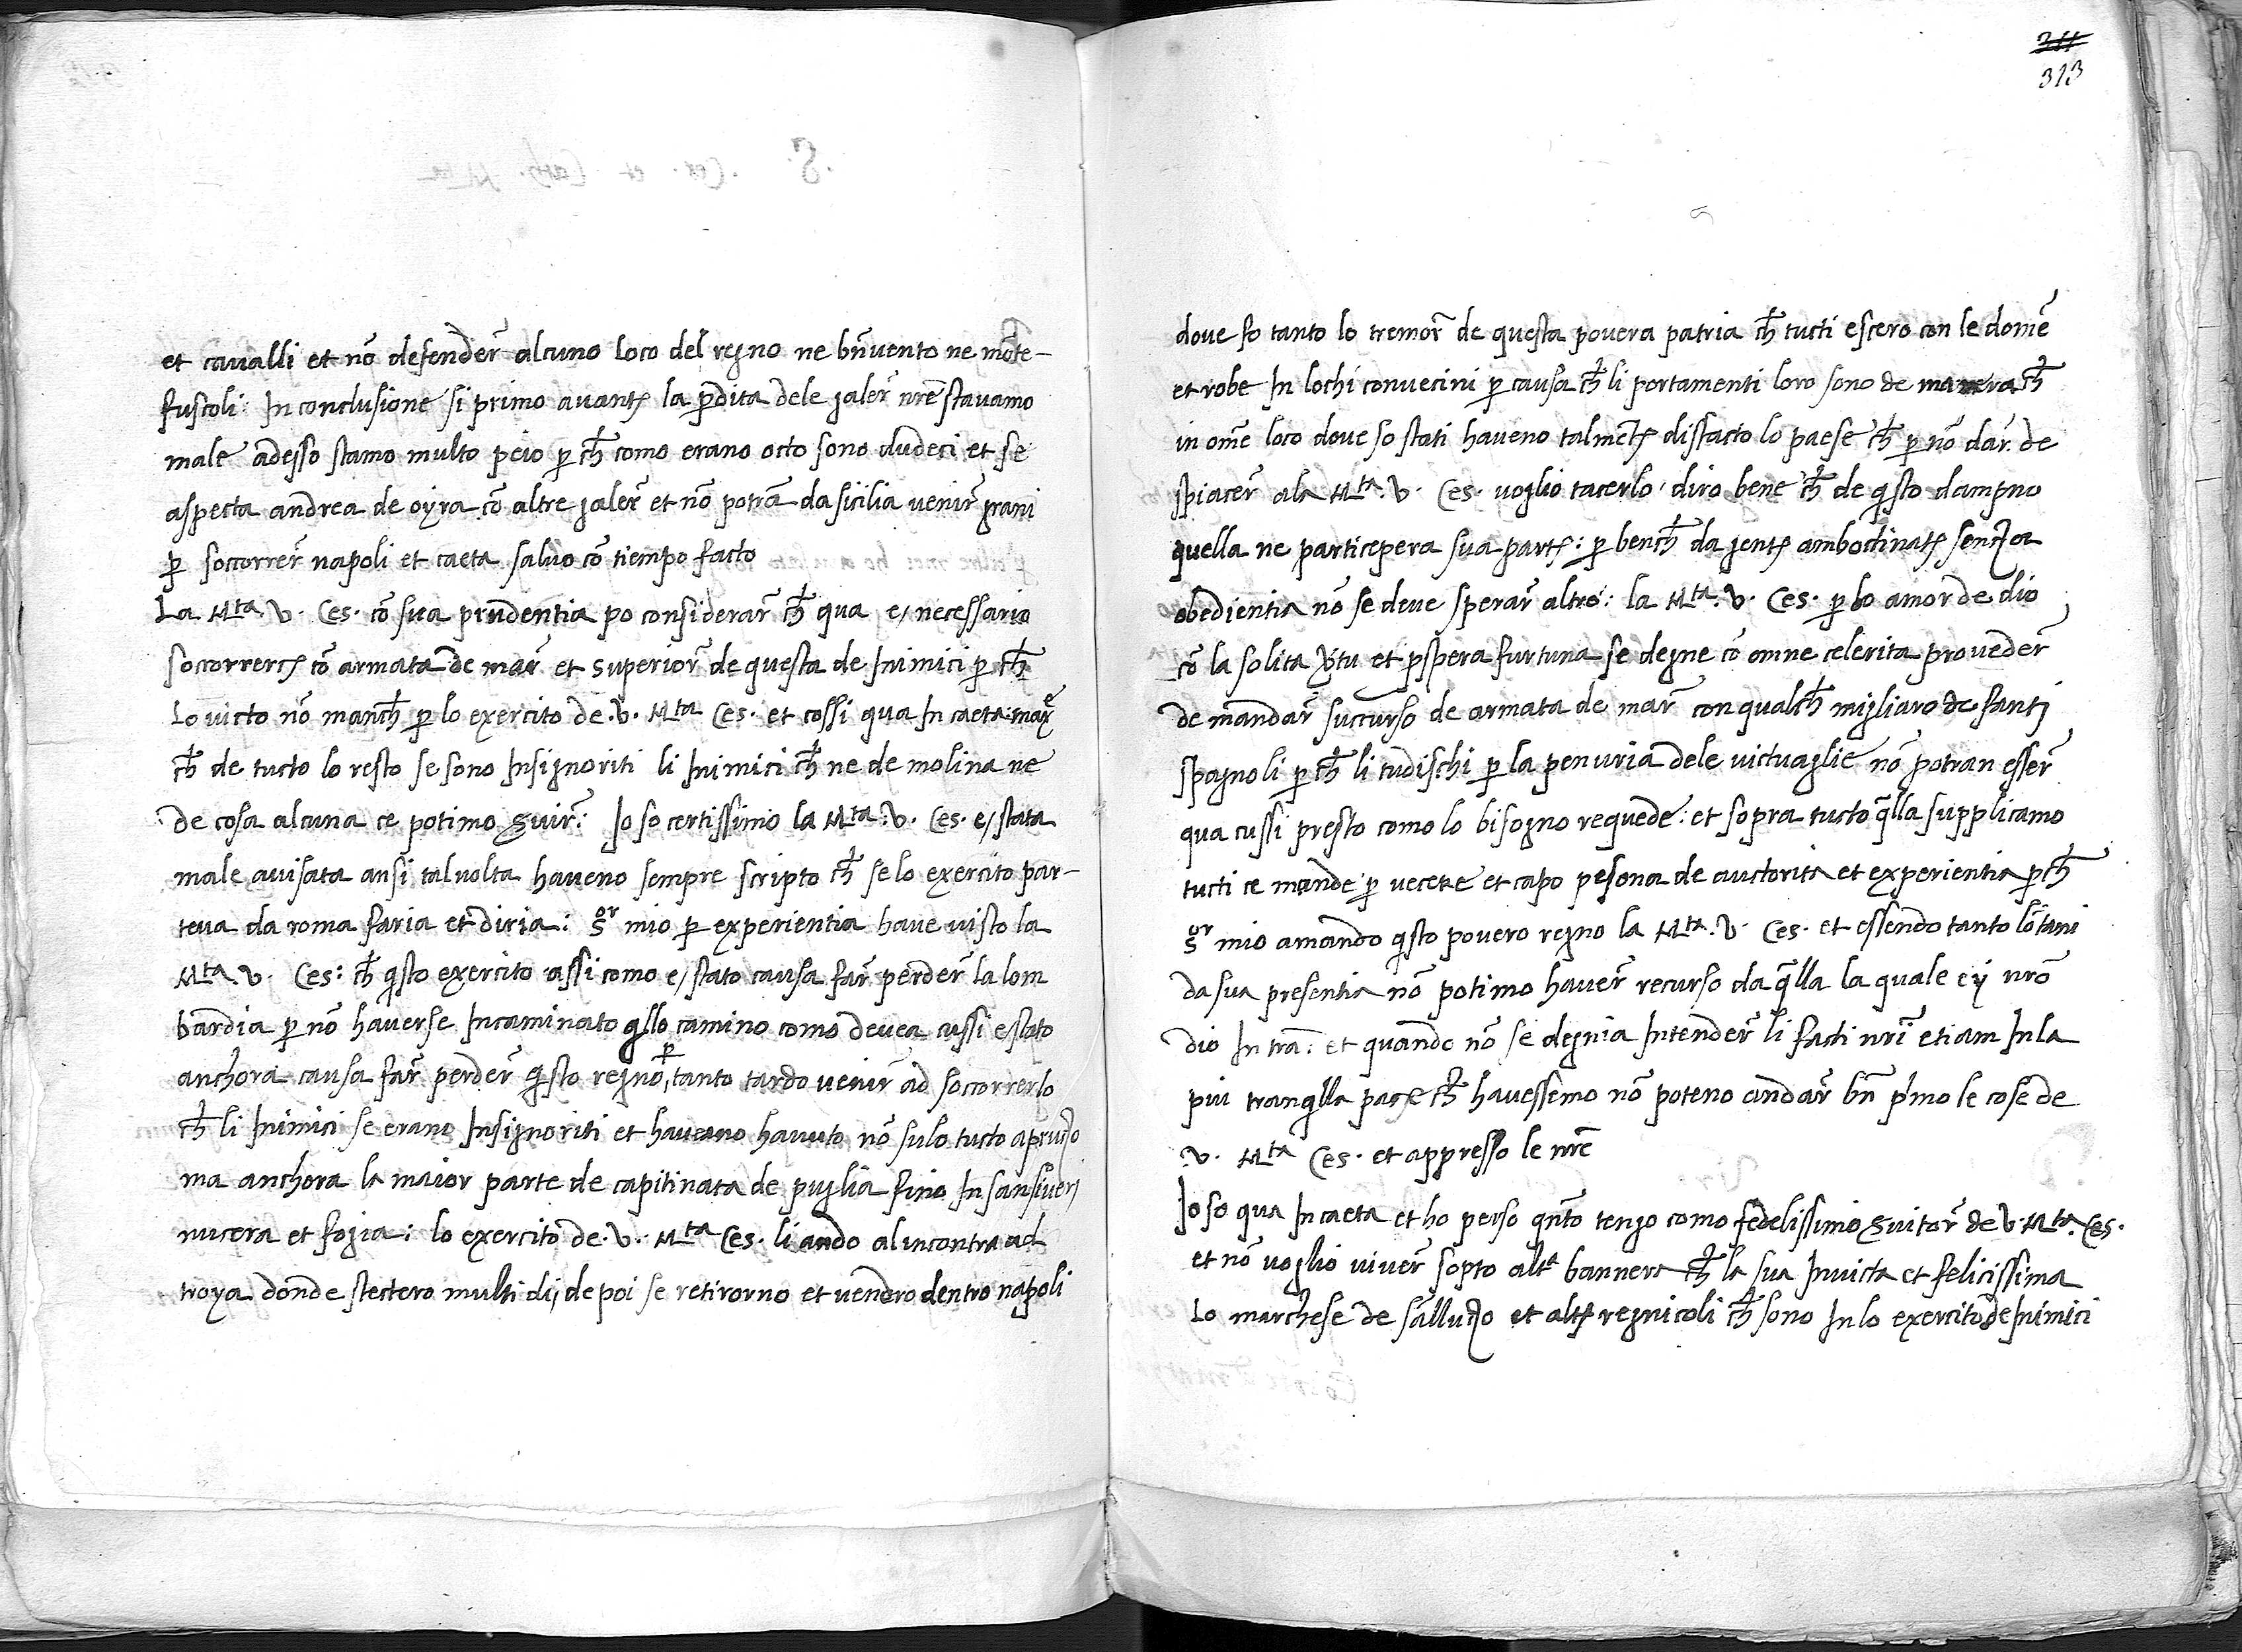 et cavalli et nõ defender̃ alcuno loco del regno ne bñvento ne mõte-
fuscoli: In conclusione si primo avant̃ la p̱dita dele galer̃ nr̃e stavamo
male adesso stamo multo peio p̱ch̃ como erano octo sono dudeci et se
aspecta andrea de oyra cõ altre galer̃ et nõ potrã da sicilia venir̃ grani
p̱ soccorrer̃ napoli et caeta salvo cõ tiempo facto
La Mta. v. Ces. cõ sua prudentia po considerar̃ ch̃ qua e/ necessario
soccorrerc̃ cõ armata de mar̃ et superior̃ de questa de Inimici p̱ch̃
Lo victo nõ manch̃ p̱ lo exercito de .v. Mta Ces. et cossi qua In caeta mar̃
ch̃ de tucto lo resto se sono Insignoriti li Inimici ch̃ ne de molina ne
de cosa alcuna ce potimo s̃vir̃: Io so certissimo la Mta. v. Ces. e/ stata
male avisata ansi talvolta haveno sempre scripto ch̃ se lo exercito par-
teva da roma faria et diria: Sor mio p̱ experientia have visto la
Mta. v. Ces: ch̃ q̃sto exercito assi como e/ stato causa far̃ perder̃ la lom
bardia p̱ nõ haverse Incaminato q̃llo camino como devea cussi e stato
anchora causa far̃ perder̃ q̃sto regno, p̱ tanto tardo venir̃ ad soccorrerlo
ch̃ li Inimici se erano Insignoriti et haveano havuto nõ sulo tucto apruzo
ma anchora la maior parte de capitinata de puglia fino In sansiver̃
nucera et fogia: lo exercito de .v. Mta Ces. li ando al incontra ad
troya donde stectero multi di, depoi se retirorno et vendro dentro napoli
311
313
dove fo tanto lo tremor̃ de questa povera patria ch̃ tucti escero con le dom̃e
et robe In lochi convecini p̱ causa ch̃ li portamenti loro sono de manera ch̃
in om̃e loco dove so stati haveno talmẽt̃ disfacto lo paese ch̃ p̱ nõ dar̃ de
spiacer̃ ala Mta. v. Ces. voglio tacerlo, diro bene ch̃ de q̃sto dampno
quella ne participera sua part̃: p̱ bench̃ da gent̃ amboctinat̃ senza
obedientia nõ se deve sperar̃ altro: la Mta. v. Ces. p̱ lo amor de dio
cõ la solita ṽtu et p̱spera furtuna se degne cõ omne celerita proveder̃
de mandar̃ succurso de armata de mar̃ con qualch̃ migliaro de fanti
spagnoli p̱ch̃ li tudischi p̱ la penuria dele victuaglie nõ potran esser̃
qua cussi presto como lo bisogno requede: et sopra tucto q̃lla supplicamo
tucti ce mande p̱ vecere et capo pesona de auctorita et experientia p̱ch̃
Sor mio amando q̃sto povero regno la Mta. v. Ces. et essendo tanto lõtani
da sua presentia nõ potimo haver̃ recurso da q̃lla la quale ey nr̃o
dio In tr̃a: et quando nõ se degnia Intender̃ li facti nr̃i etiam In la
piu tranq̃lla pace ch̃ havessemo nõ poteno andar̃ bñ p'mo le cose de
.v. Mta Ces. et appresso le nr̃e
Io so qua In caeta et ho perso qñto tengo como fedelissimo s̃vitor̃ de v. Mta. Ces.
et nõ voglio viver̃ sopto alta bannera ch̃ la sua Invicta et felicissima
Lo marchese de salluzo et alt̃ regnicoli ch̃ sono In lo exercito de Inimici